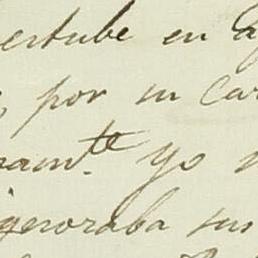 ertube en
por su Car
ram.te yo
igeroraba sus